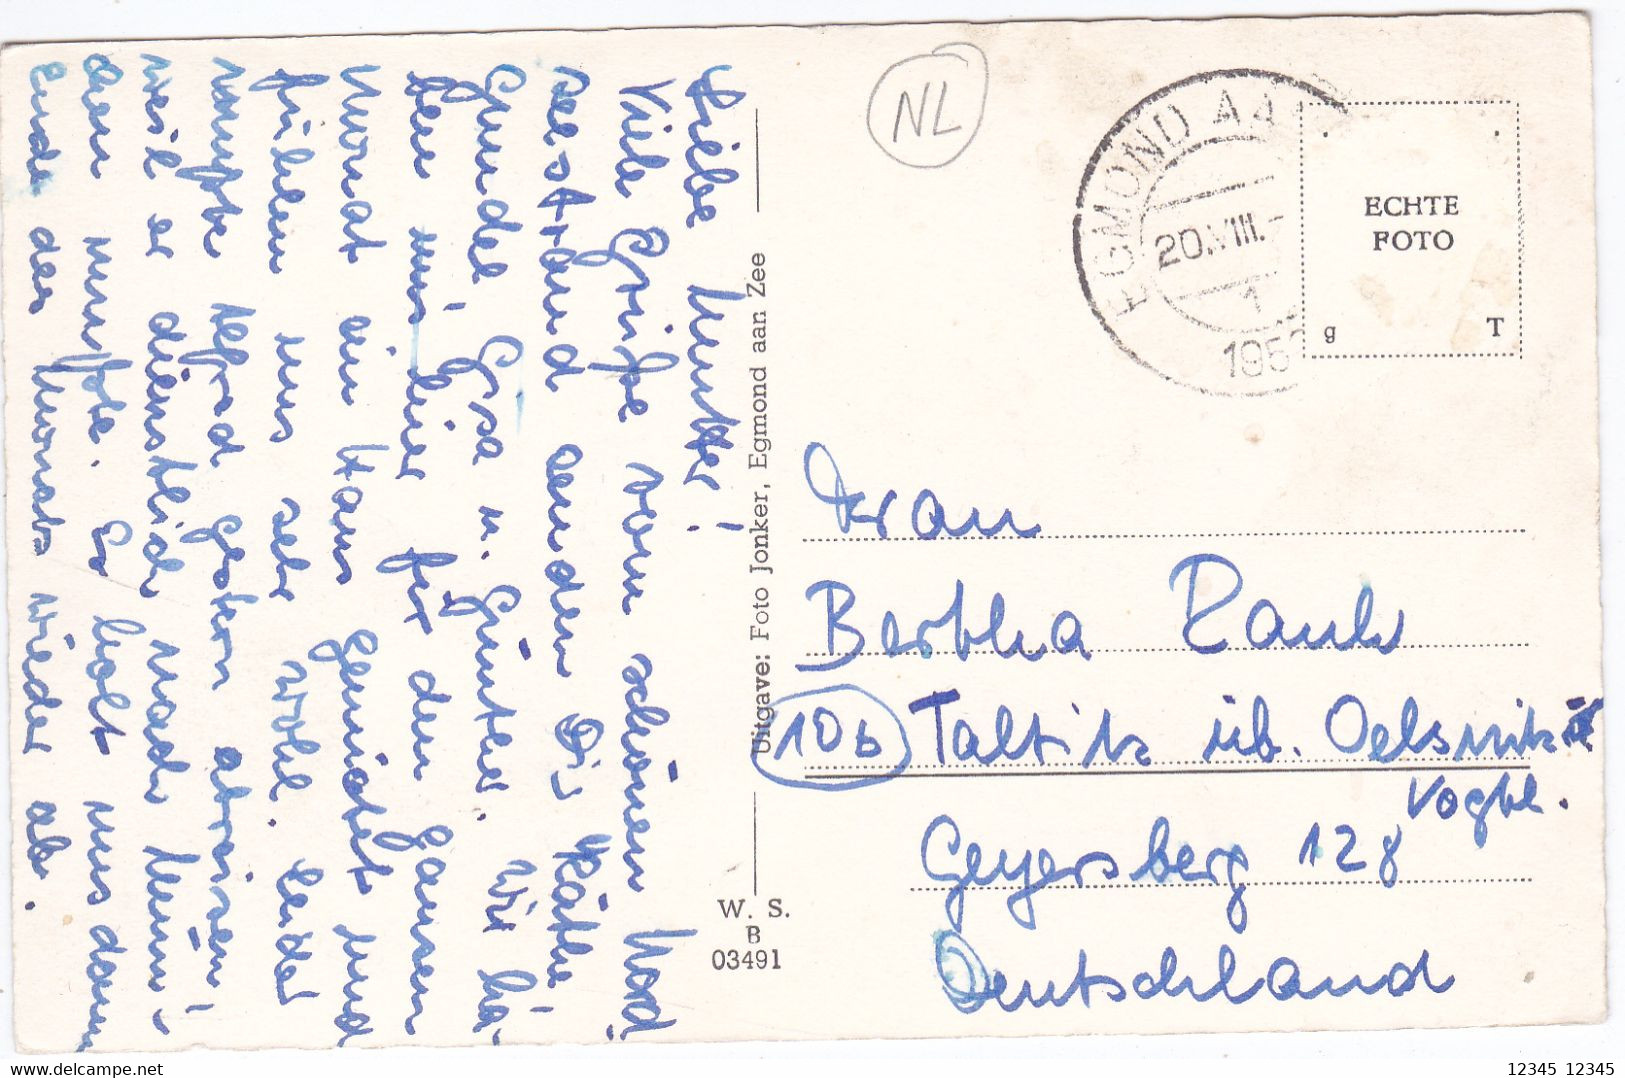 Liebe Mutter!
Viele Grüße vom schönen Nord-
seestrand senden Dir Käthe
Gundel Gisa u. Günther. Wir ha-
ben uns hier für den ganzen
Monat ein Haus gemietet und
fühlen uns sehr wohl. Leider
mußte Alfred gestern abreisen,
weil er dienstlich nach Mün-
chen mußte. Er holt uns dann
Ende des Monats wieder ab.
Uitgave: Foto Jonker, Egmond aan Zee
W. S.
B
03491
NL
EGMOND AA
20.VIII.
1
195
ECHTE
FOTO
g T
Frau
Bertha
10b Taltitz üb. Oelsnitz
Vogtl.
Geyersberg 128
Deutschland
www.delcampe.net
12345 12345